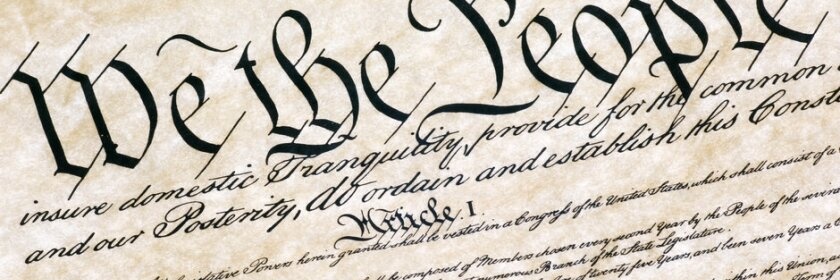 We the People
insure domestic Tranquility, provide for the common
and our Posterity, do ordain and establish this Const
Article. I.
Powers herein granted shall be vested in a Congreſs of the United States, which shall consist of a
be composed of Members chosen every second Year by the People of the several
numerous Branch of the State Legislature.
of twenty five Years, and been seven Years a
within this Union,